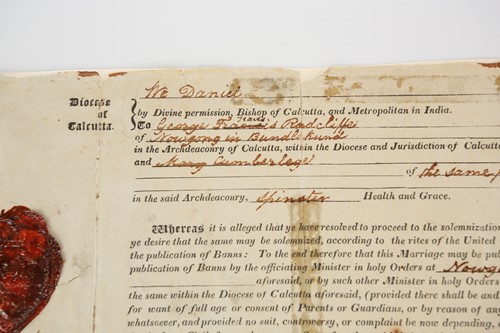 We Daniel
Diocese
of
Calcutta.
by Divine permission, Bishop of Calcutta, and Metropolitan in India.
To George Francis Radcliffe
of Nowgong in Bundlekund
in the Archdeaconry of Calcutta, within the Diocese and Jurisdiction of Calcutta
and Mary Cumberlege
of the same
in the said Archdeaconry, Spinster Health and Grace.
Whereas it is alleged that ye have resolved to proceed to the solemnization
ye desire that the same may be solemnized, according to the rites of the United
the publication of Banns: To the end therefore that this Marriage may be
publication of Banns by the officiating Minister in holy Orders at Nowg
aforesaid, or by such other Minister in holy Orders
the same within the Diocese of Calcutta aforesaid, (provided there shall be
for want of full age or consent of Parents or Guardians, or by reason of
whatsoever, and provided no suit, controversy, or complaint be now depending,